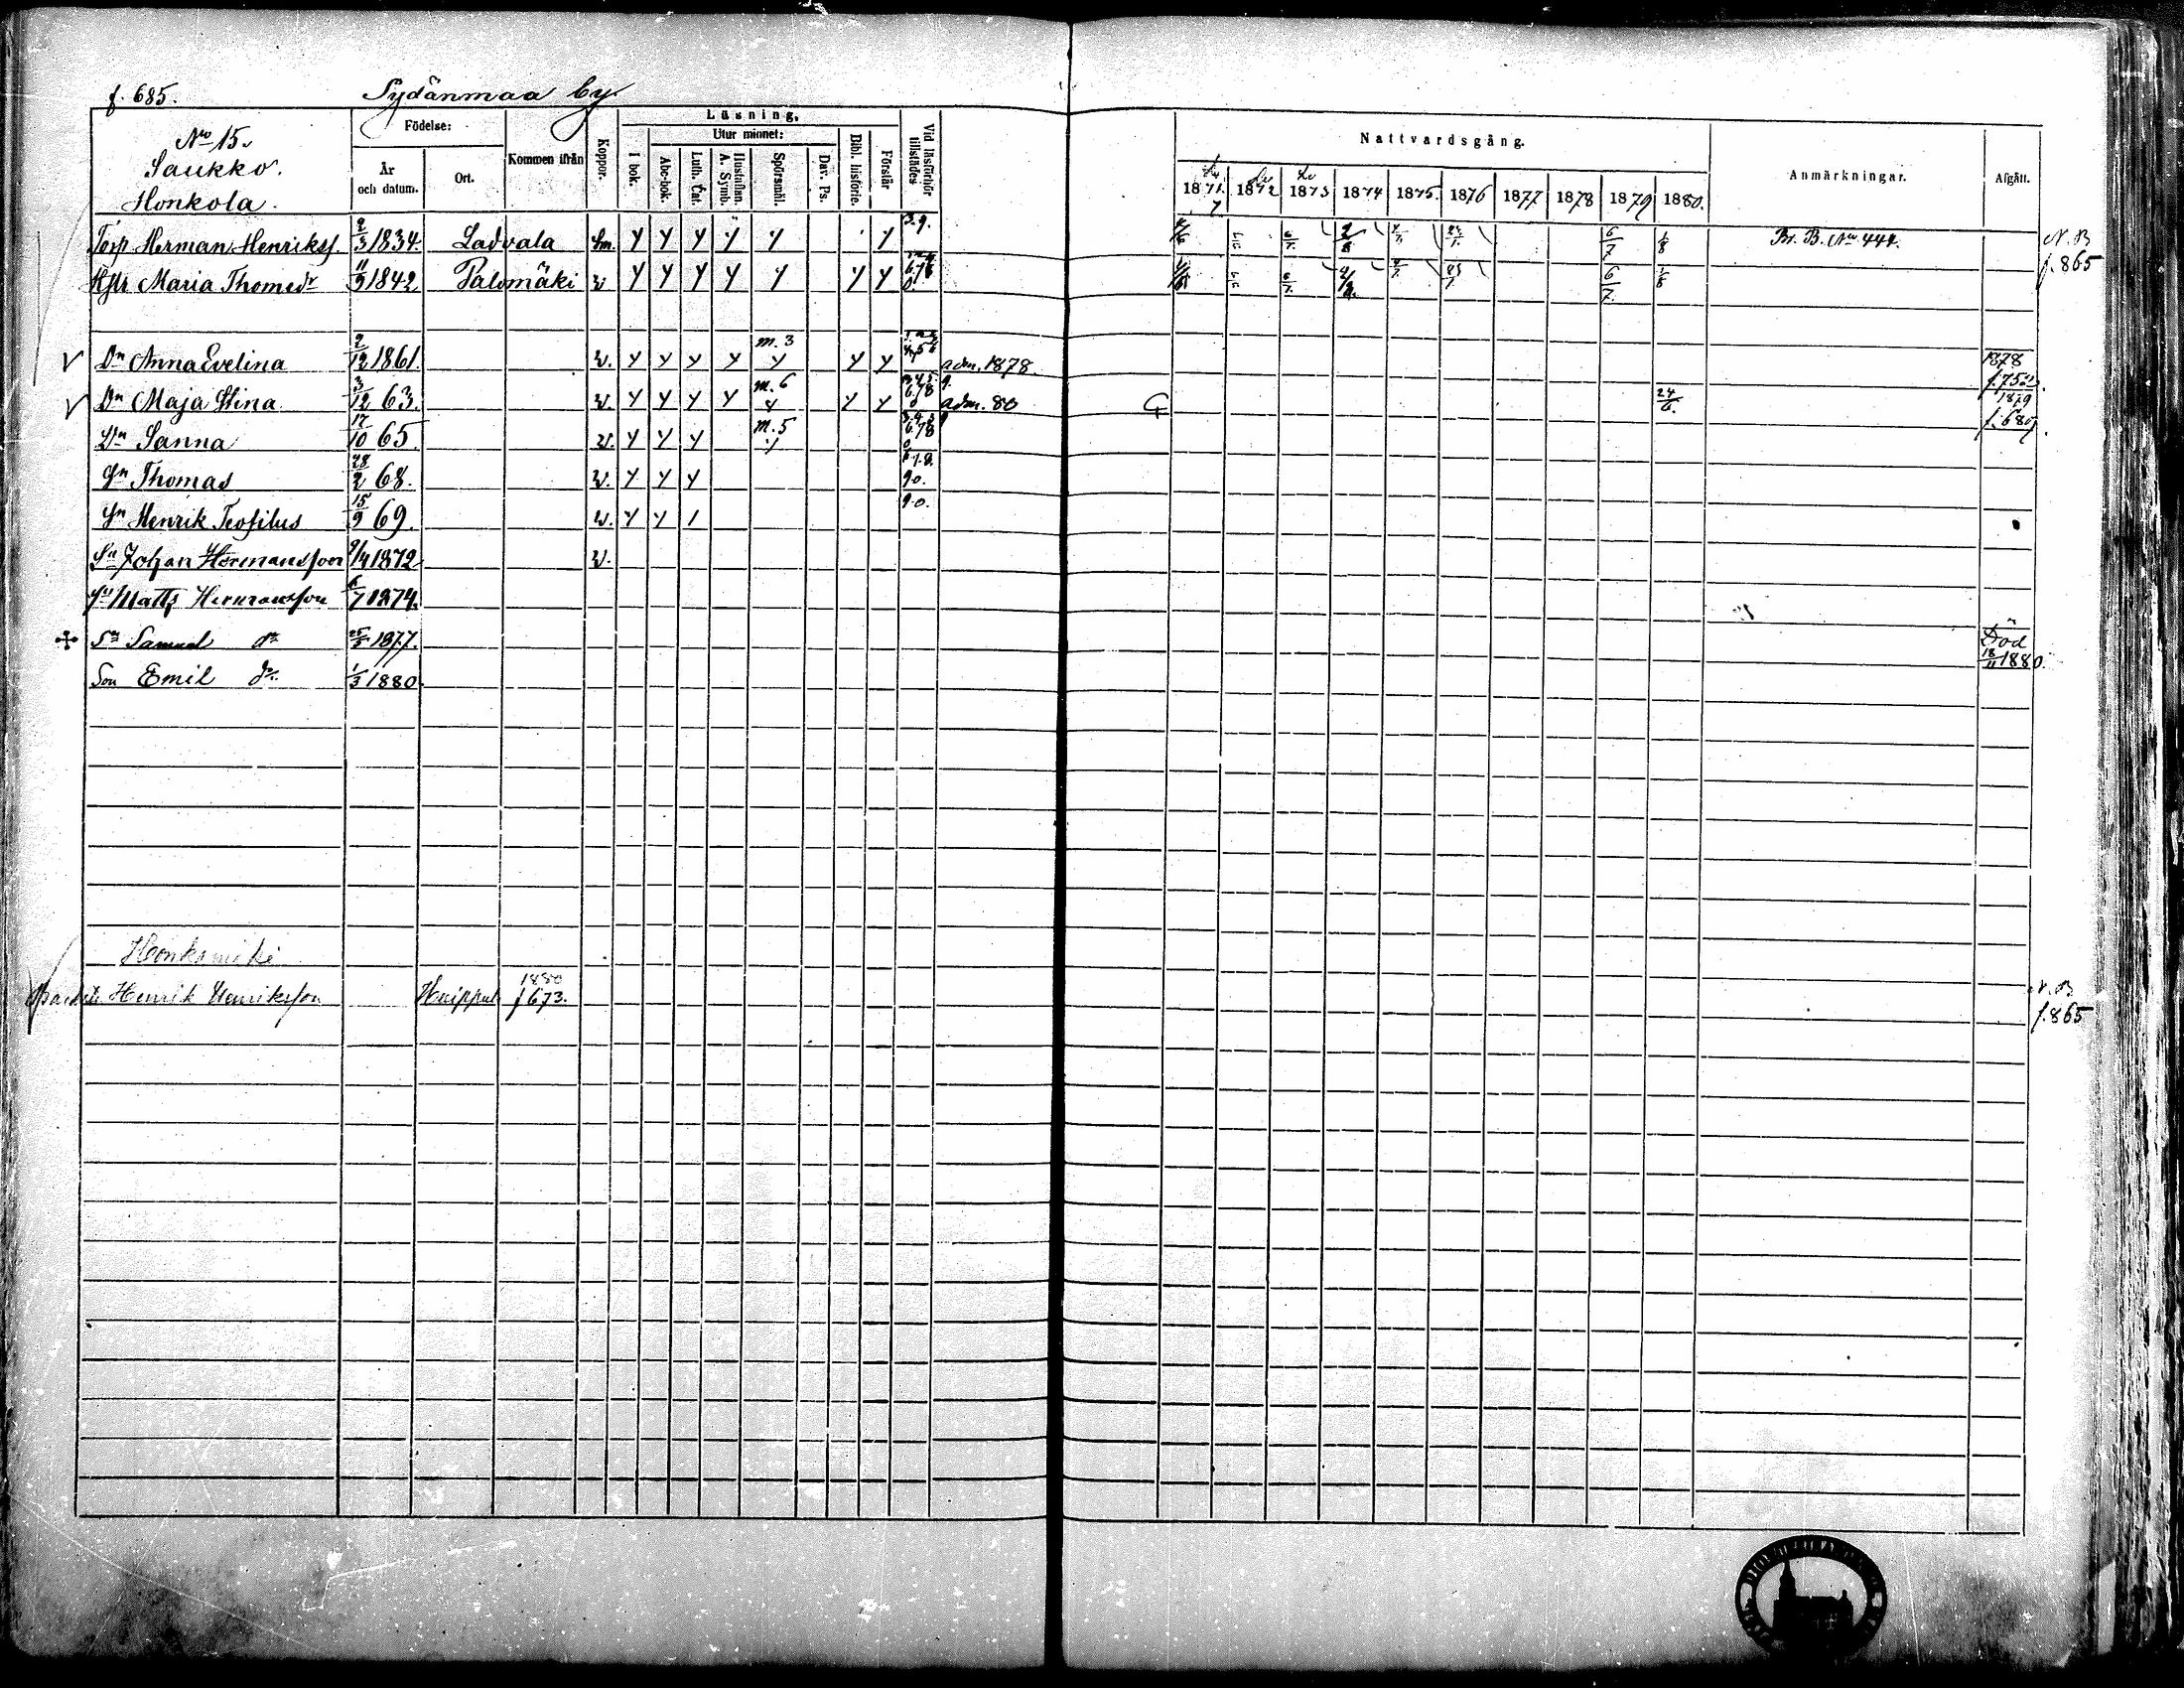 f. 685.
Sydänmaa by
No 15.
Saukko.
Honkola.
Födelse:
År och datum.
Ort.
Kommen ifrån
Koppor.
Läsning.
I bok.
Utur minnet:
Abc-bok.
Luth. Cat.
Hustaflan. A. Symb.
Spörsmål.
Dav. Ps.
Bibl. historie.
Förstår
Vid läsförhör tillstädes
Nattvardsgång.
1871 1872 1873 1874 1875. 1876 1877 1878 1879 1880.
Anmärkningar.
Afgått.
Torp Herman Henrikss. 2/3 1834. Ladvala 3.9. 6/7 1/8 Br. B. No 444. N. B f. 865
Hstr Maria Thomedr 11/9 1842 Palomäki v 6/7 1/8
Dr Anna Evelina 2/12 1861. v. m. 3 adm. 1878. 1878 f. 752.
Dr Maja Stina 3/12 63. v. m. 6 adm. 80 24/6. 1879 f. 689.
Dr Sanna 17/10 65. v. m. 5
Sn Thomas 28/2 68. v. 90.
Sn Henrik Teofilus 15/9 69. v. 90.
Sn Johan Hermansson 9/4 1872 v.
Sn Matts Hermansson 1874.
Sn Samuel do 25/5 1877. Död 18/11 1880.
Son Emil do 1/3 1880.
Honkamäki
Henrik Henriksson 1880 f 673. N. B f. 865